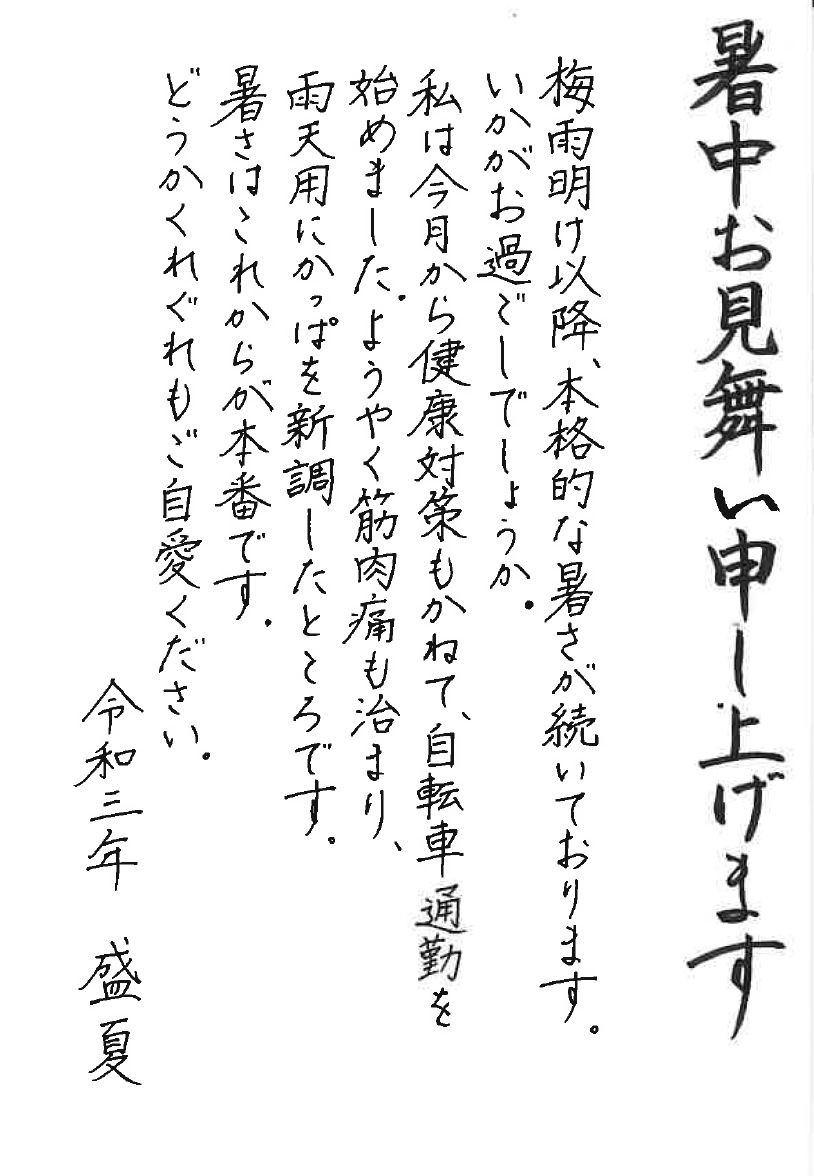 暑中お見舞い申し上げます
梅雨明け以降、本格的な暑さが続いております。
いかがお過ごしでしょうか。
私は今月から健康対策もかねて、自転車通勤を
始めました。ようやく筋肉痛も治まり、
雨天用にかっぱを新調したところです。
暑さはこれからが本番です。
どうかくれぐれもご自愛ください。
令和三年 盛夏